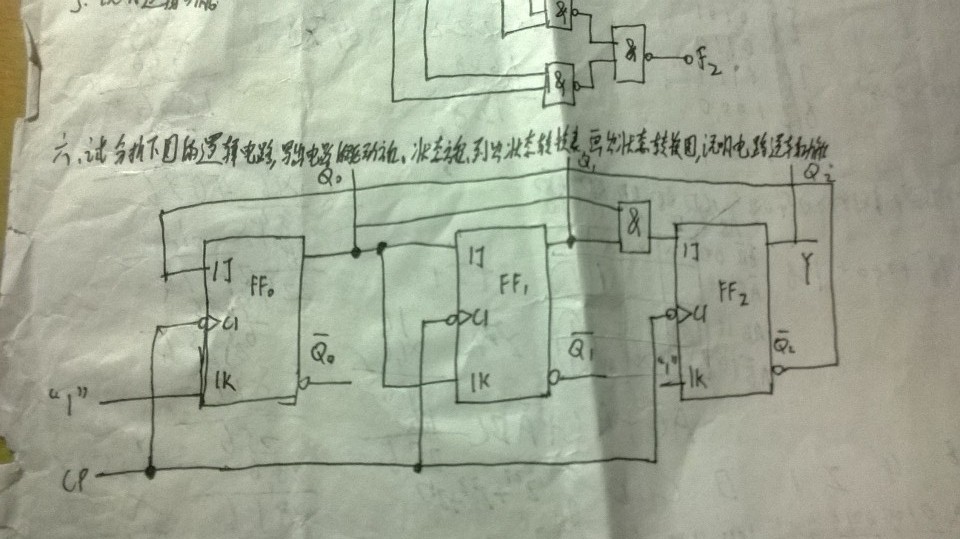 &
&
&
F₂
六、试分析下图的逻辑电路，写出电路的驱动方程、状态方程，列出状态转换表，画出状态转换图，说明电路逻辑功能
Q₀ Q₁ Q₂
&
1J FF₀ C1 1K Q̅₀
1J FF₁ C1 1K Q̅₁
1J FF₂ C1 "1" 1K Q̅₂
Y
"1"
CP